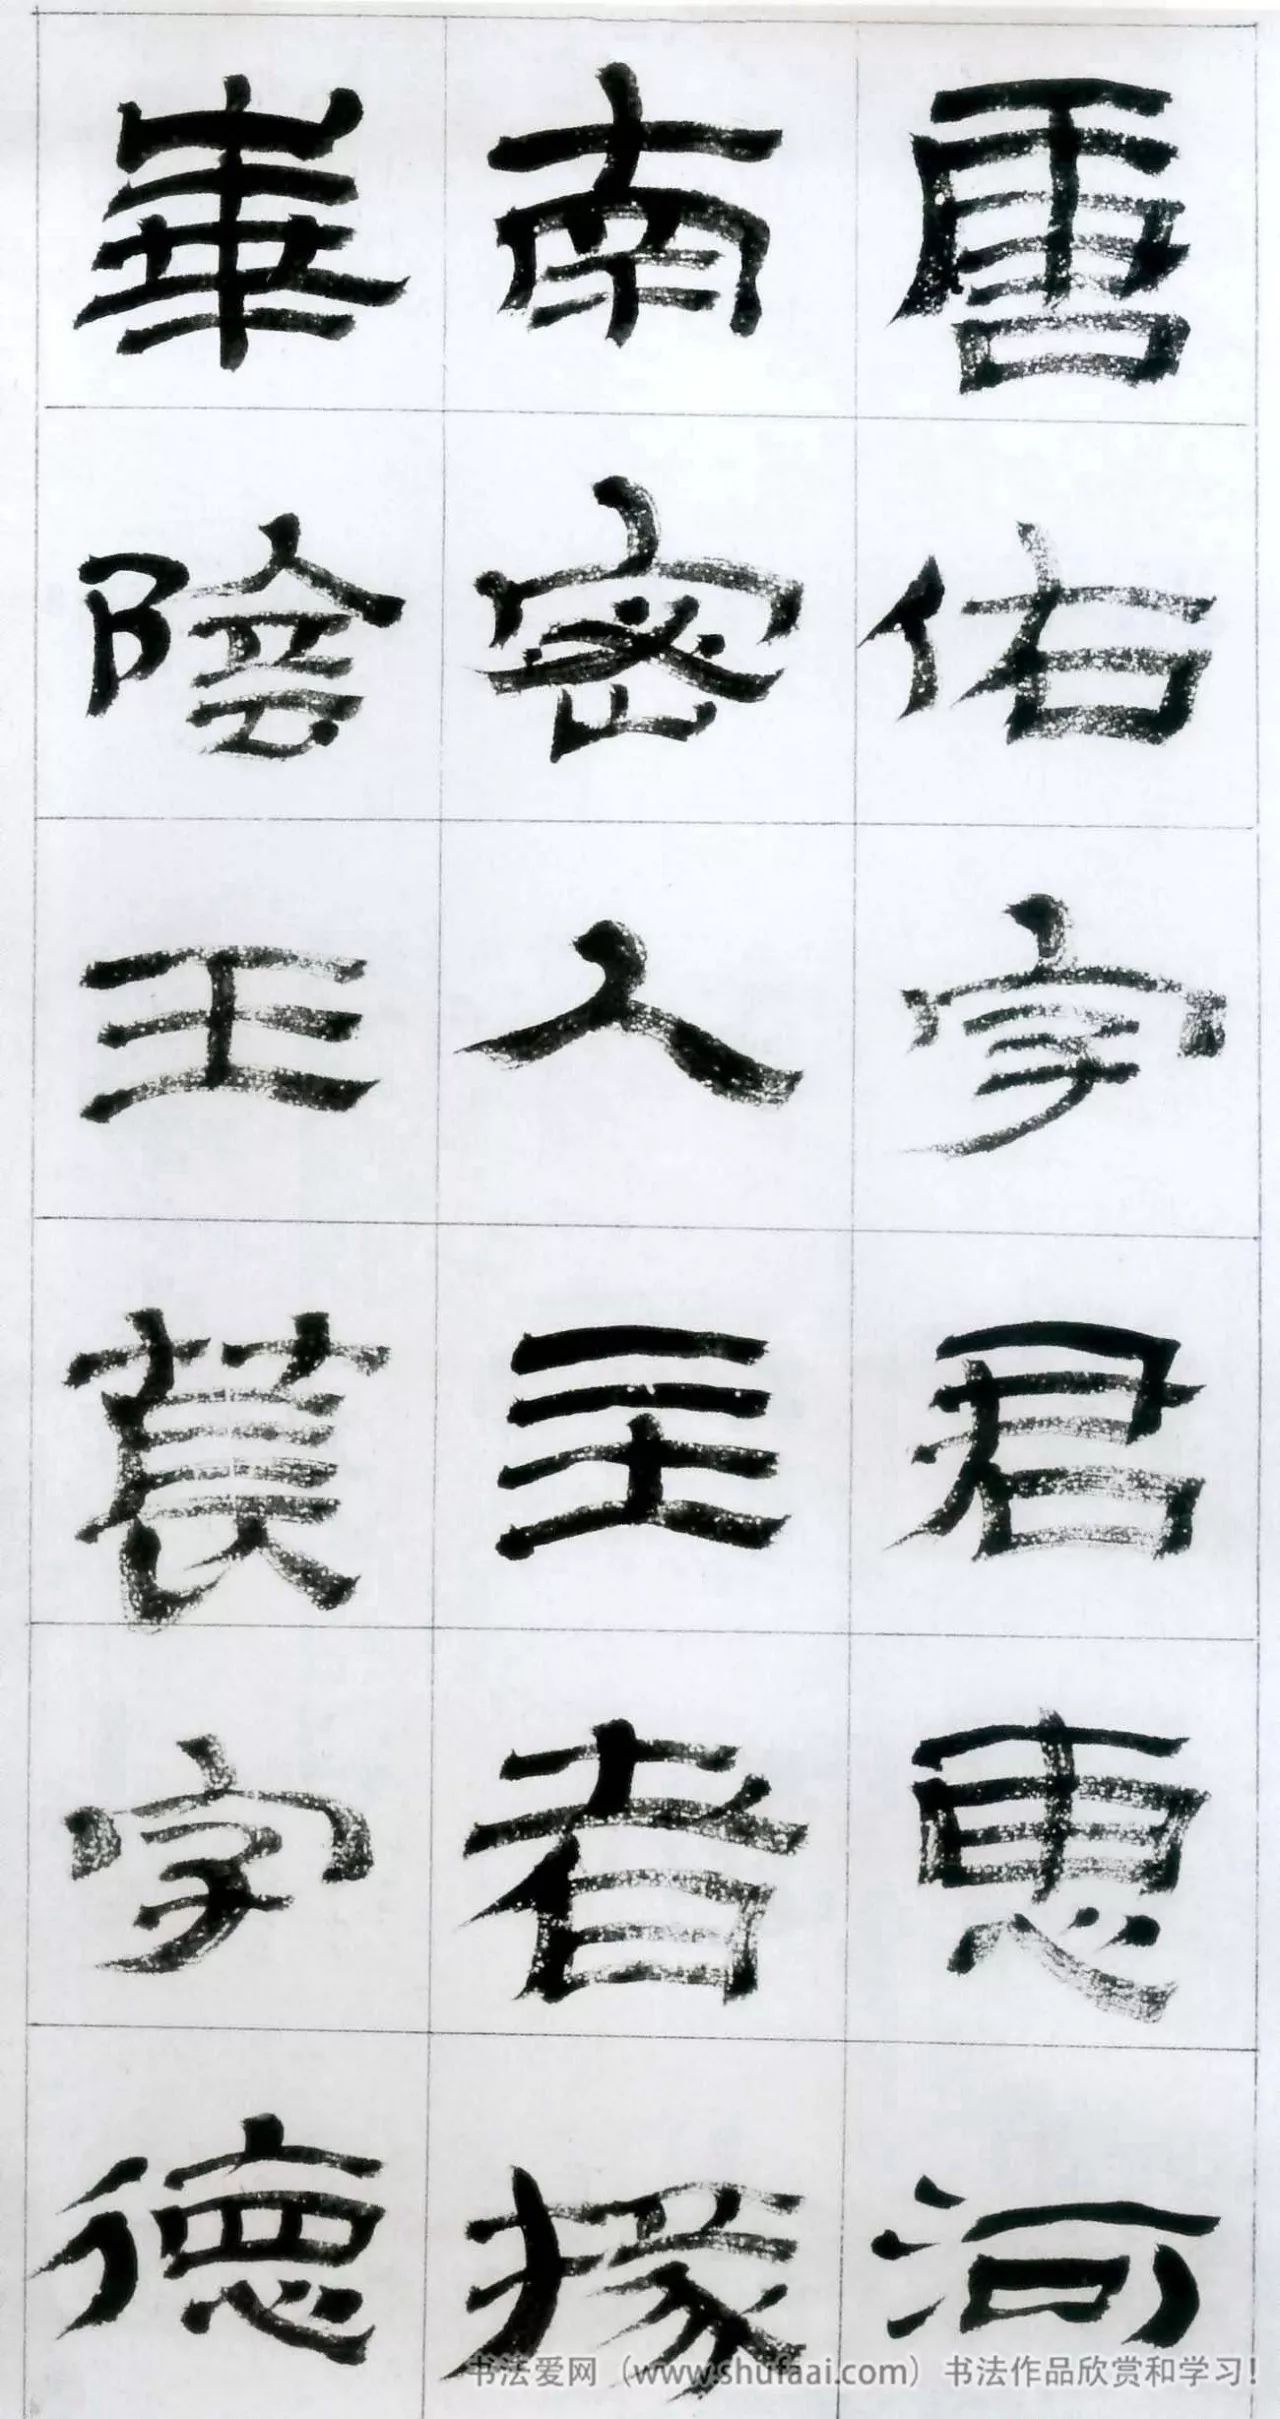 唐佑字君惠河
南密人主者掾
華陰王萇字德
书法爱网（www.shufaai.com）书法作品欣赏和学习！